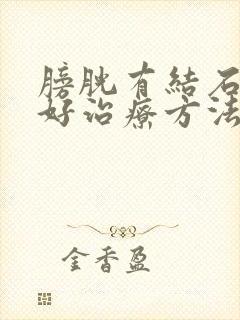 膀胱有結石
好治療方法
金香盈